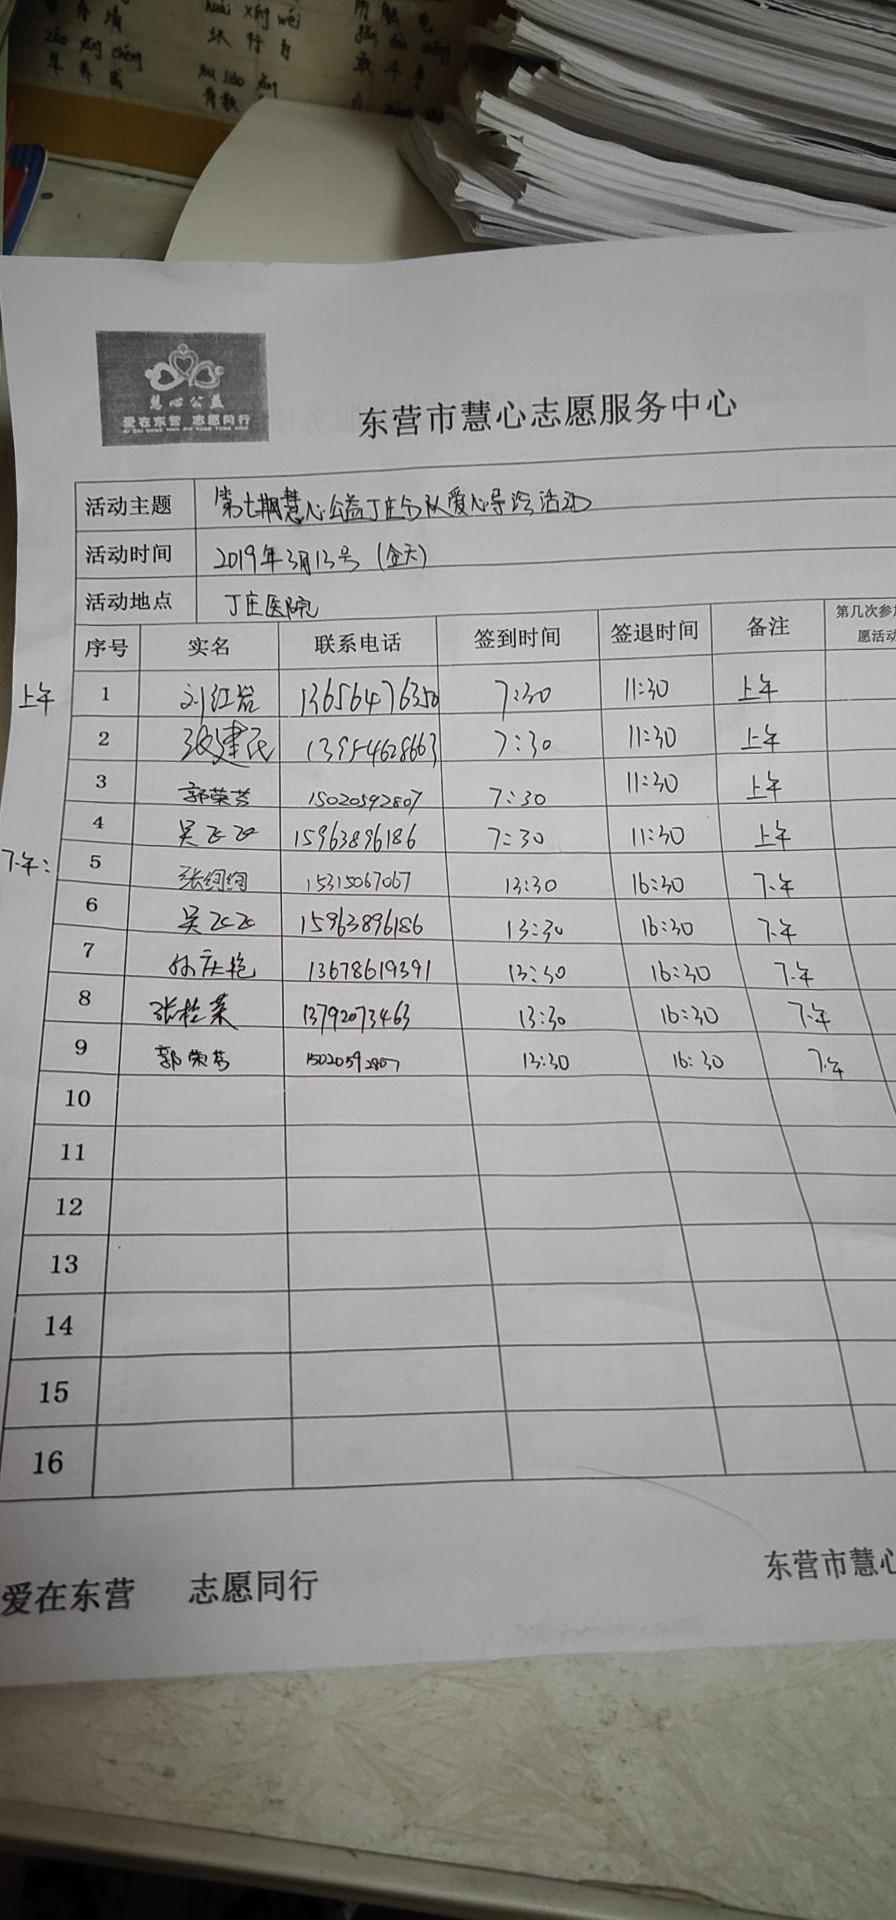 huài xíng wéi
坏 行 为
zǎo yǎng chéng
早 养 成
慧心公益
爱在东营 志愿同行
东营市慧心志愿服务中心
活动主题 第七期慧心公益丁庄分队爱心导诊活动
活动时间 2019年3月13号 (全天)
活动地点 丁庄医院
序号 实名 联系电话 签到时间 签退时间 备注 第几次参加
愿活动
上午 1 刘红岩 13656476350 7:30 11:30 上午
2 张建民 13954628663 7:30 11:30 上午
3 郭荣芳 15020592807 7:30 11:30 上午
4 吴飞飞 15963896186 7:30 11:30 上午
下午: 5 张绚绚 15315067067 13:30 16:30 下午
6 吴飞飞 15963896186 13:30 16:30 下午
7 孙庆艳 13678619391 13:30 16:30 下午
8 张桂荣 13792073463 13:30 16:30 下午
9 郭荣芳 15020592807 13:30 16:30 下午
10
11
12
13
14
15
16
爱在东营 志愿同行
东营市慧心